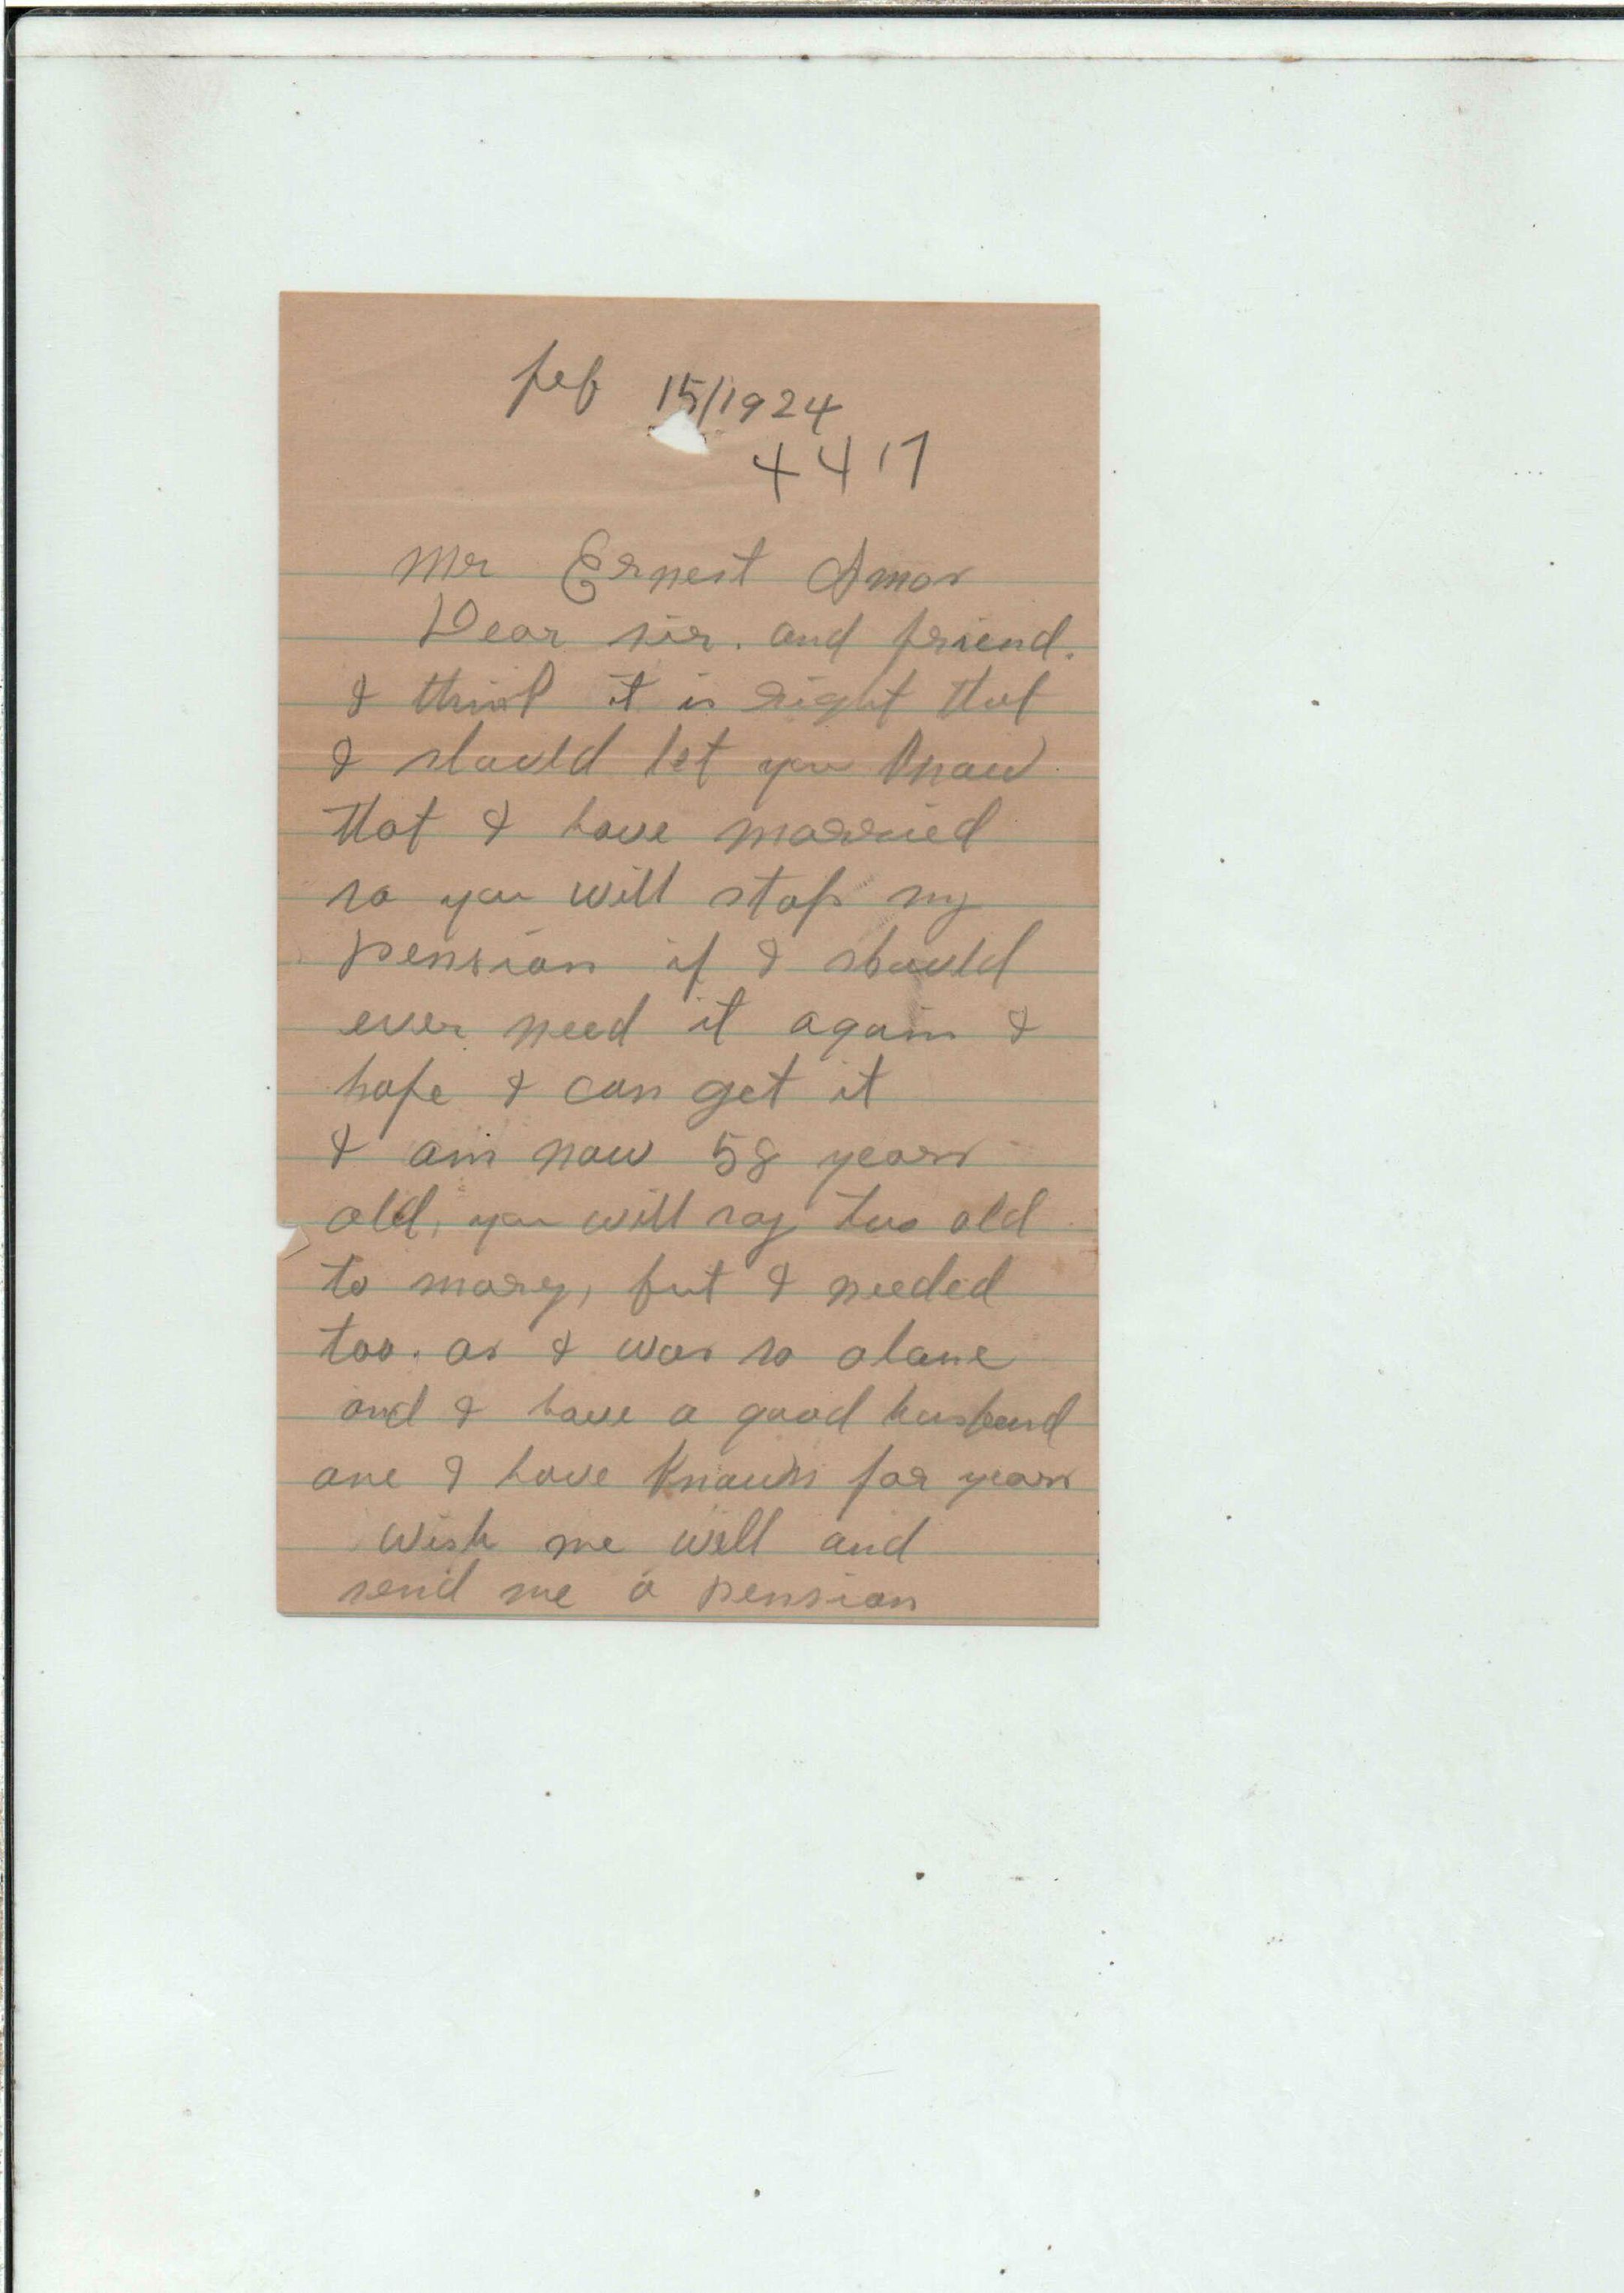 feb 15/1924
4417
Mr Ernest Amos
Dear sir. and friend.
I think it is right that
I should let you know
that I have married
so you will stop my
pension if I should
ever need it again I
hope I can get it
I am now 58 years
old, you will say two old
to mary, but I needed
too. as I was so alone
and I have a good husband
one I have known for years
wish me well and
send me a pension